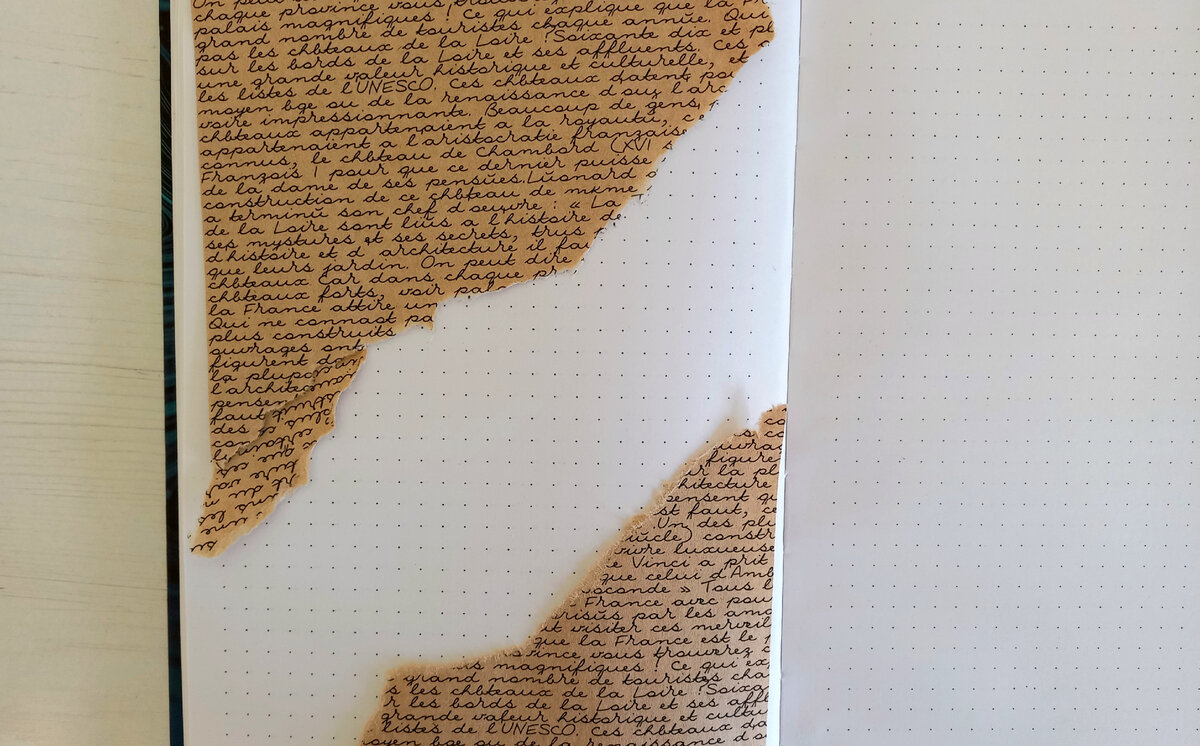 chaque province vous
palais magnifiques ! Ce qui explique que la Fr
grand nombre de touristes chaque annŭe. Qui
pas les chbteaux de la Loire ?Soixante dix et pl
sur les bords de la Loire et ses affluents. Ces
une grande valeur historique et culturelle, et
les listes de l'UNESCO. Ces chbteaux datent pou
moyen bge ou de la renaissance d ouz l'arc
voire impressionnante. Beaucoup de gens,
chbteaux appartenaient a la royautŭ, ce
appartenaient a l'aristocratie franzaise
connus, le chbteau de Chambord (XVI s
Franzois 1 pour que ce dernier puisse
de la dame de ses pensŭes.Lŭonard d
construction de ce chbteau de mkme
a terminŭ son chef d oeuvre : « La
de la Loire sont liŭs a l'histoire de
ses mystures et ses secrets, trus
d'histoire et d architecture il fau
que leurs jardin. On peut dire
chbteaux car dans chaque pr
chbteaux forts, voir pal
la France attire un
Qui ne connaot pa
plus construits
ouvrages ont
figurent da
la plupa
l'archite
pensen
faut
des p
con
co
ouvra
figure
ur la pl
hitecture
pensent qu
st faut, ce
Un des plu
iŭcle) constr
vivre luxueuse
e Vinci a prit
que celui d'Amb
oconde » Tous l
France avec pou
orisŭs par les amo
ut visiter ces merveil
que la France est le p
ovince vous trouverez c
s magnifiques ! Ce qui ex
grand nombre de touristes cha
s les chbteaux de la Loire ?Soixa
r les bords de la Loire et ses affl
grande valeur historique et cultu
listes de l'UNESCO. Ces chbteaux da
oyen bge ou de la renaissance d o